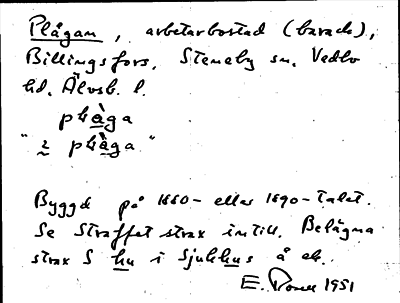 Plågan, arbetarbostad (barack),
Billingsfors, Steneby sn, Vedbo
hd, Älvsb. l.
plåga
"2 plåga"
Byggd på 1880- eller 1890-talet.
Se Straffet strax intill. Belägna
strax S hu i Sjukhus å ek.
E. 1951